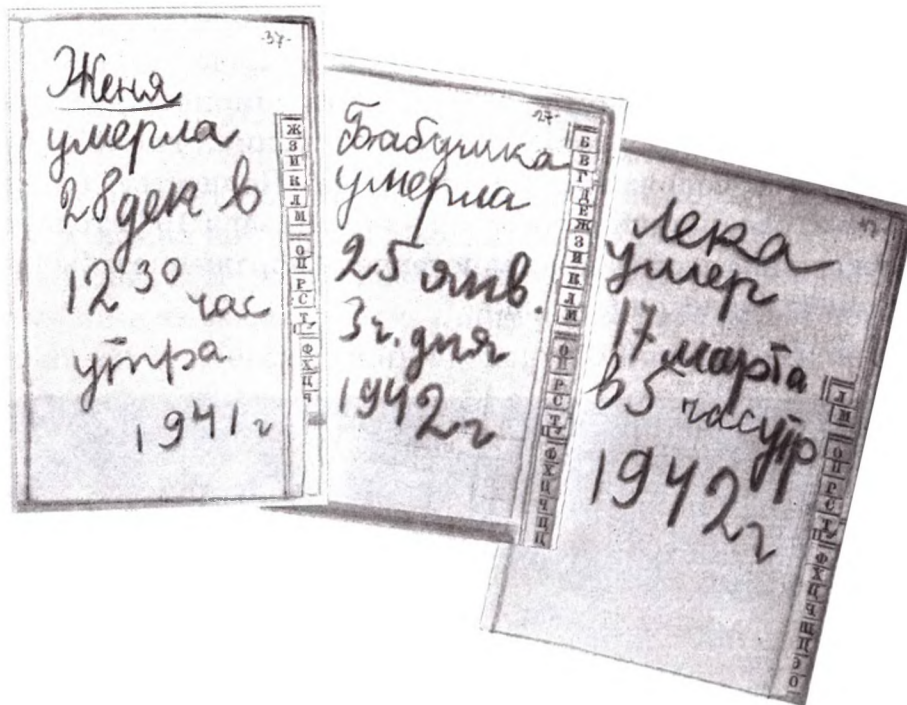 -37-
Женя
умерла
28 ден в
12 30 час
утра
1941 г
Ж
З
И
К
Л
М
О
П
Р
С
Т
Ф
Х
Ц
Ч
-27-
Бабушка
умерла
25 янв.
3 ч. дня
1942 г
Б
В
Г
Д
Е
Ж
З
И
К
Л
М
О
П
Р
С
Т
лека
умер
17 марта
в 5 час утр
1942 г
Л
М
О
П
Р
С
Т